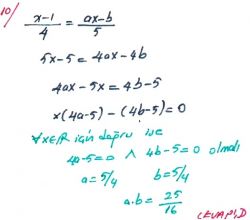 10/
x-1/4 = ax-b/5
5x-5 = 4ax-4b
4ax-5x = 4b-5
x(4a-5)-(4b-5)=0
∀x∈ℝ için doğru ise
4a-5=0 ∧ 4b-5=0 olmalı
a=5/4 b=5/4
a.b = 25/16
CEVAP:D